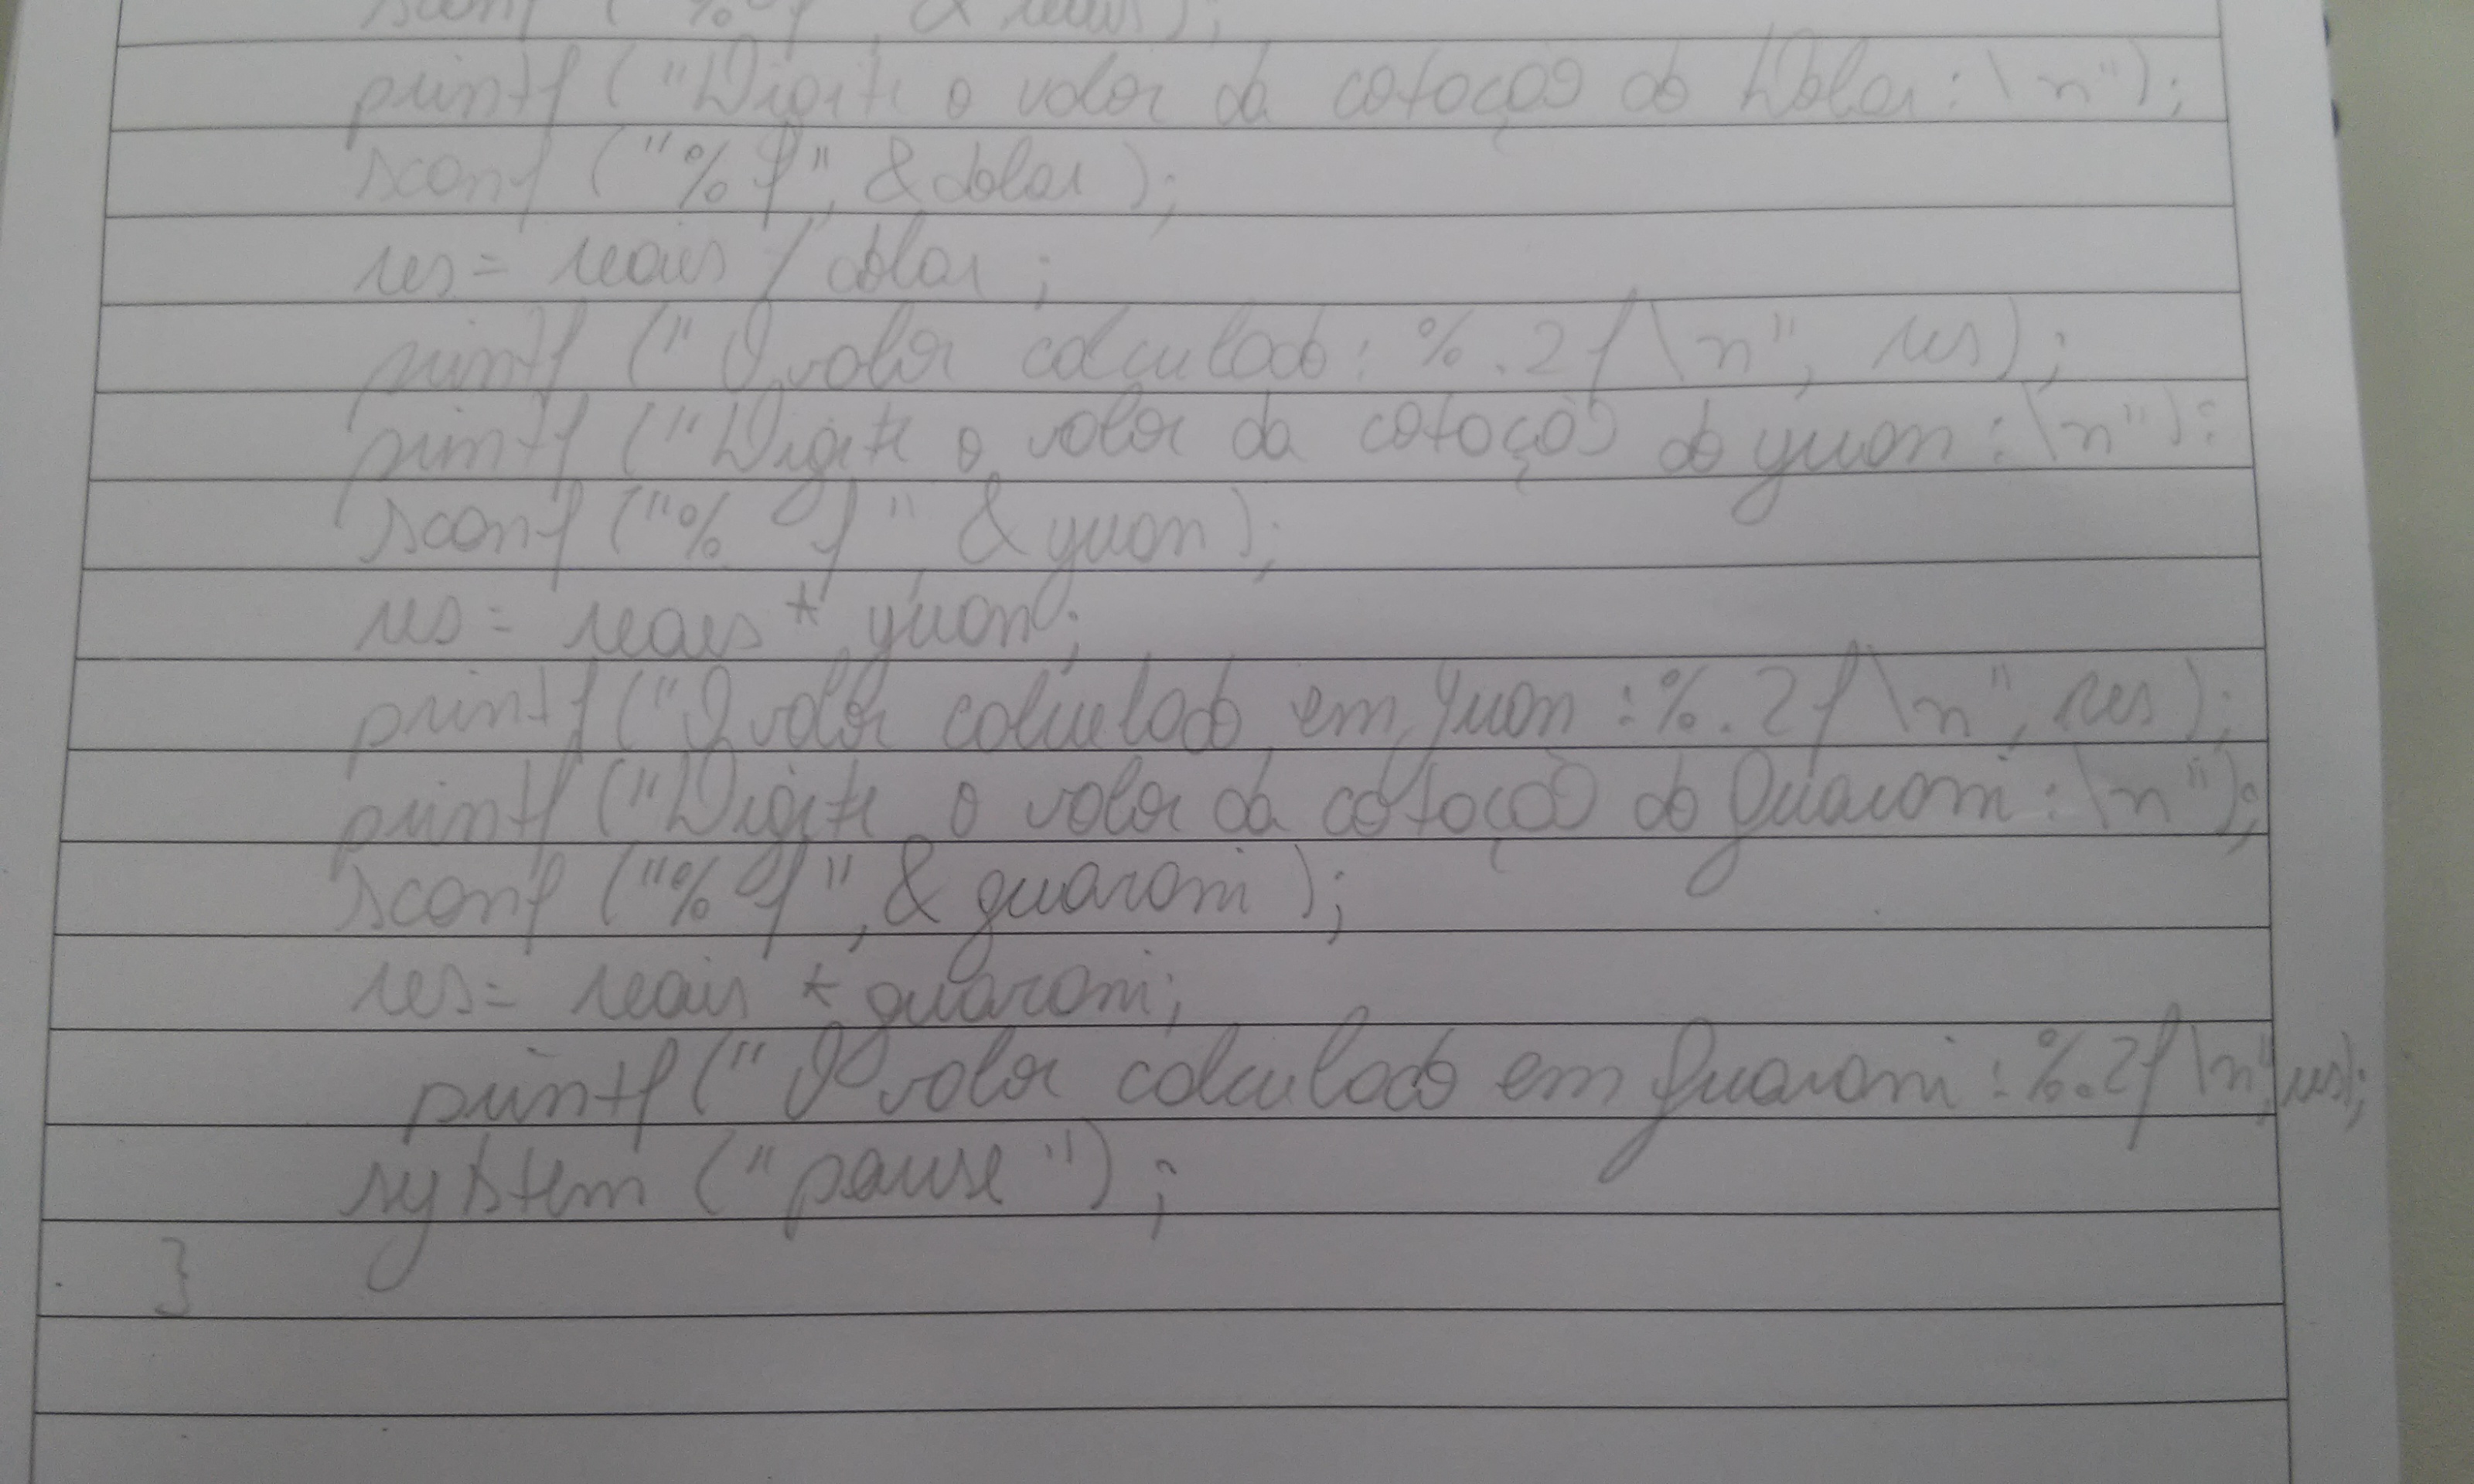 scanf ("%f" & reais);
printf ("Digite o valor da cotação do Dolar: \n");
scanf ("%f", &dolar);
res = reais / dolar;
printf ("O valor calculado: %.2f \n", res);
printf ("Digite o valor da cotação do yuan: \n");
scanf ("%f" &yuan);
res = reais * yuan;
printf ("O valor calculado em Yuan: %.2f \n", res);
printf ("Digite o valor da cotação do guarani: \n");
scanf ("%f", & guarani);
res = reais * guarani;
printf ("O valor calculado em guarani: %.2f \n", res);
system ("pause");
}